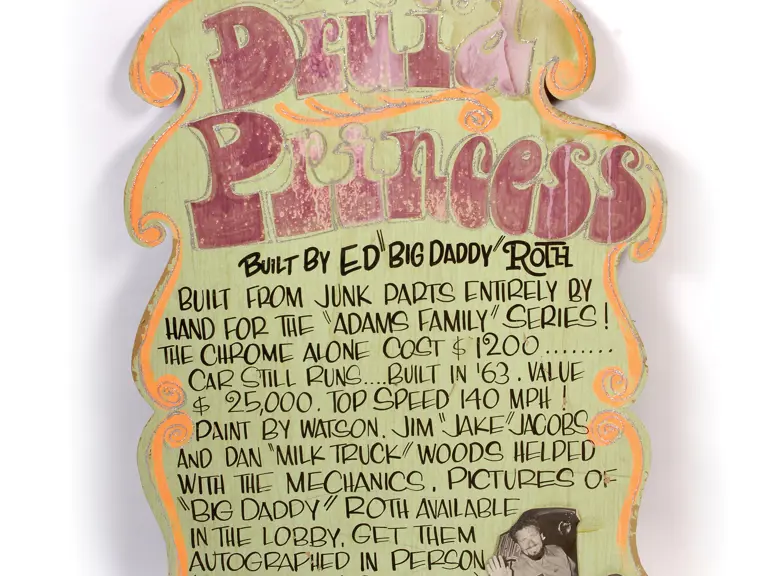 Druid
Princess
BUILT BY ED "BIG DADDY" ROTH
BUILT FROM JUNK PARTS ENTIRELY BY
HAND FOR THE "ADAMS FAMILY" SERIES!
THE CHROME ALONE COST $1200........
CAR STILL RUNS....BUILT IN '63. VALUE
$ 25,000. TOP SPEED 140 MPH!
PAINT BY WATSON. JIM "JAKE" JACOBS
AND DAN "MILK TRUCK" WOODS HELPED
WITH THE MECHANICS. PICTURES OF
"BIG DADDY" ROTH AVAILABLE
IN THE LOBBY. GET THEM
AUTOGRAPHED IN PERSON